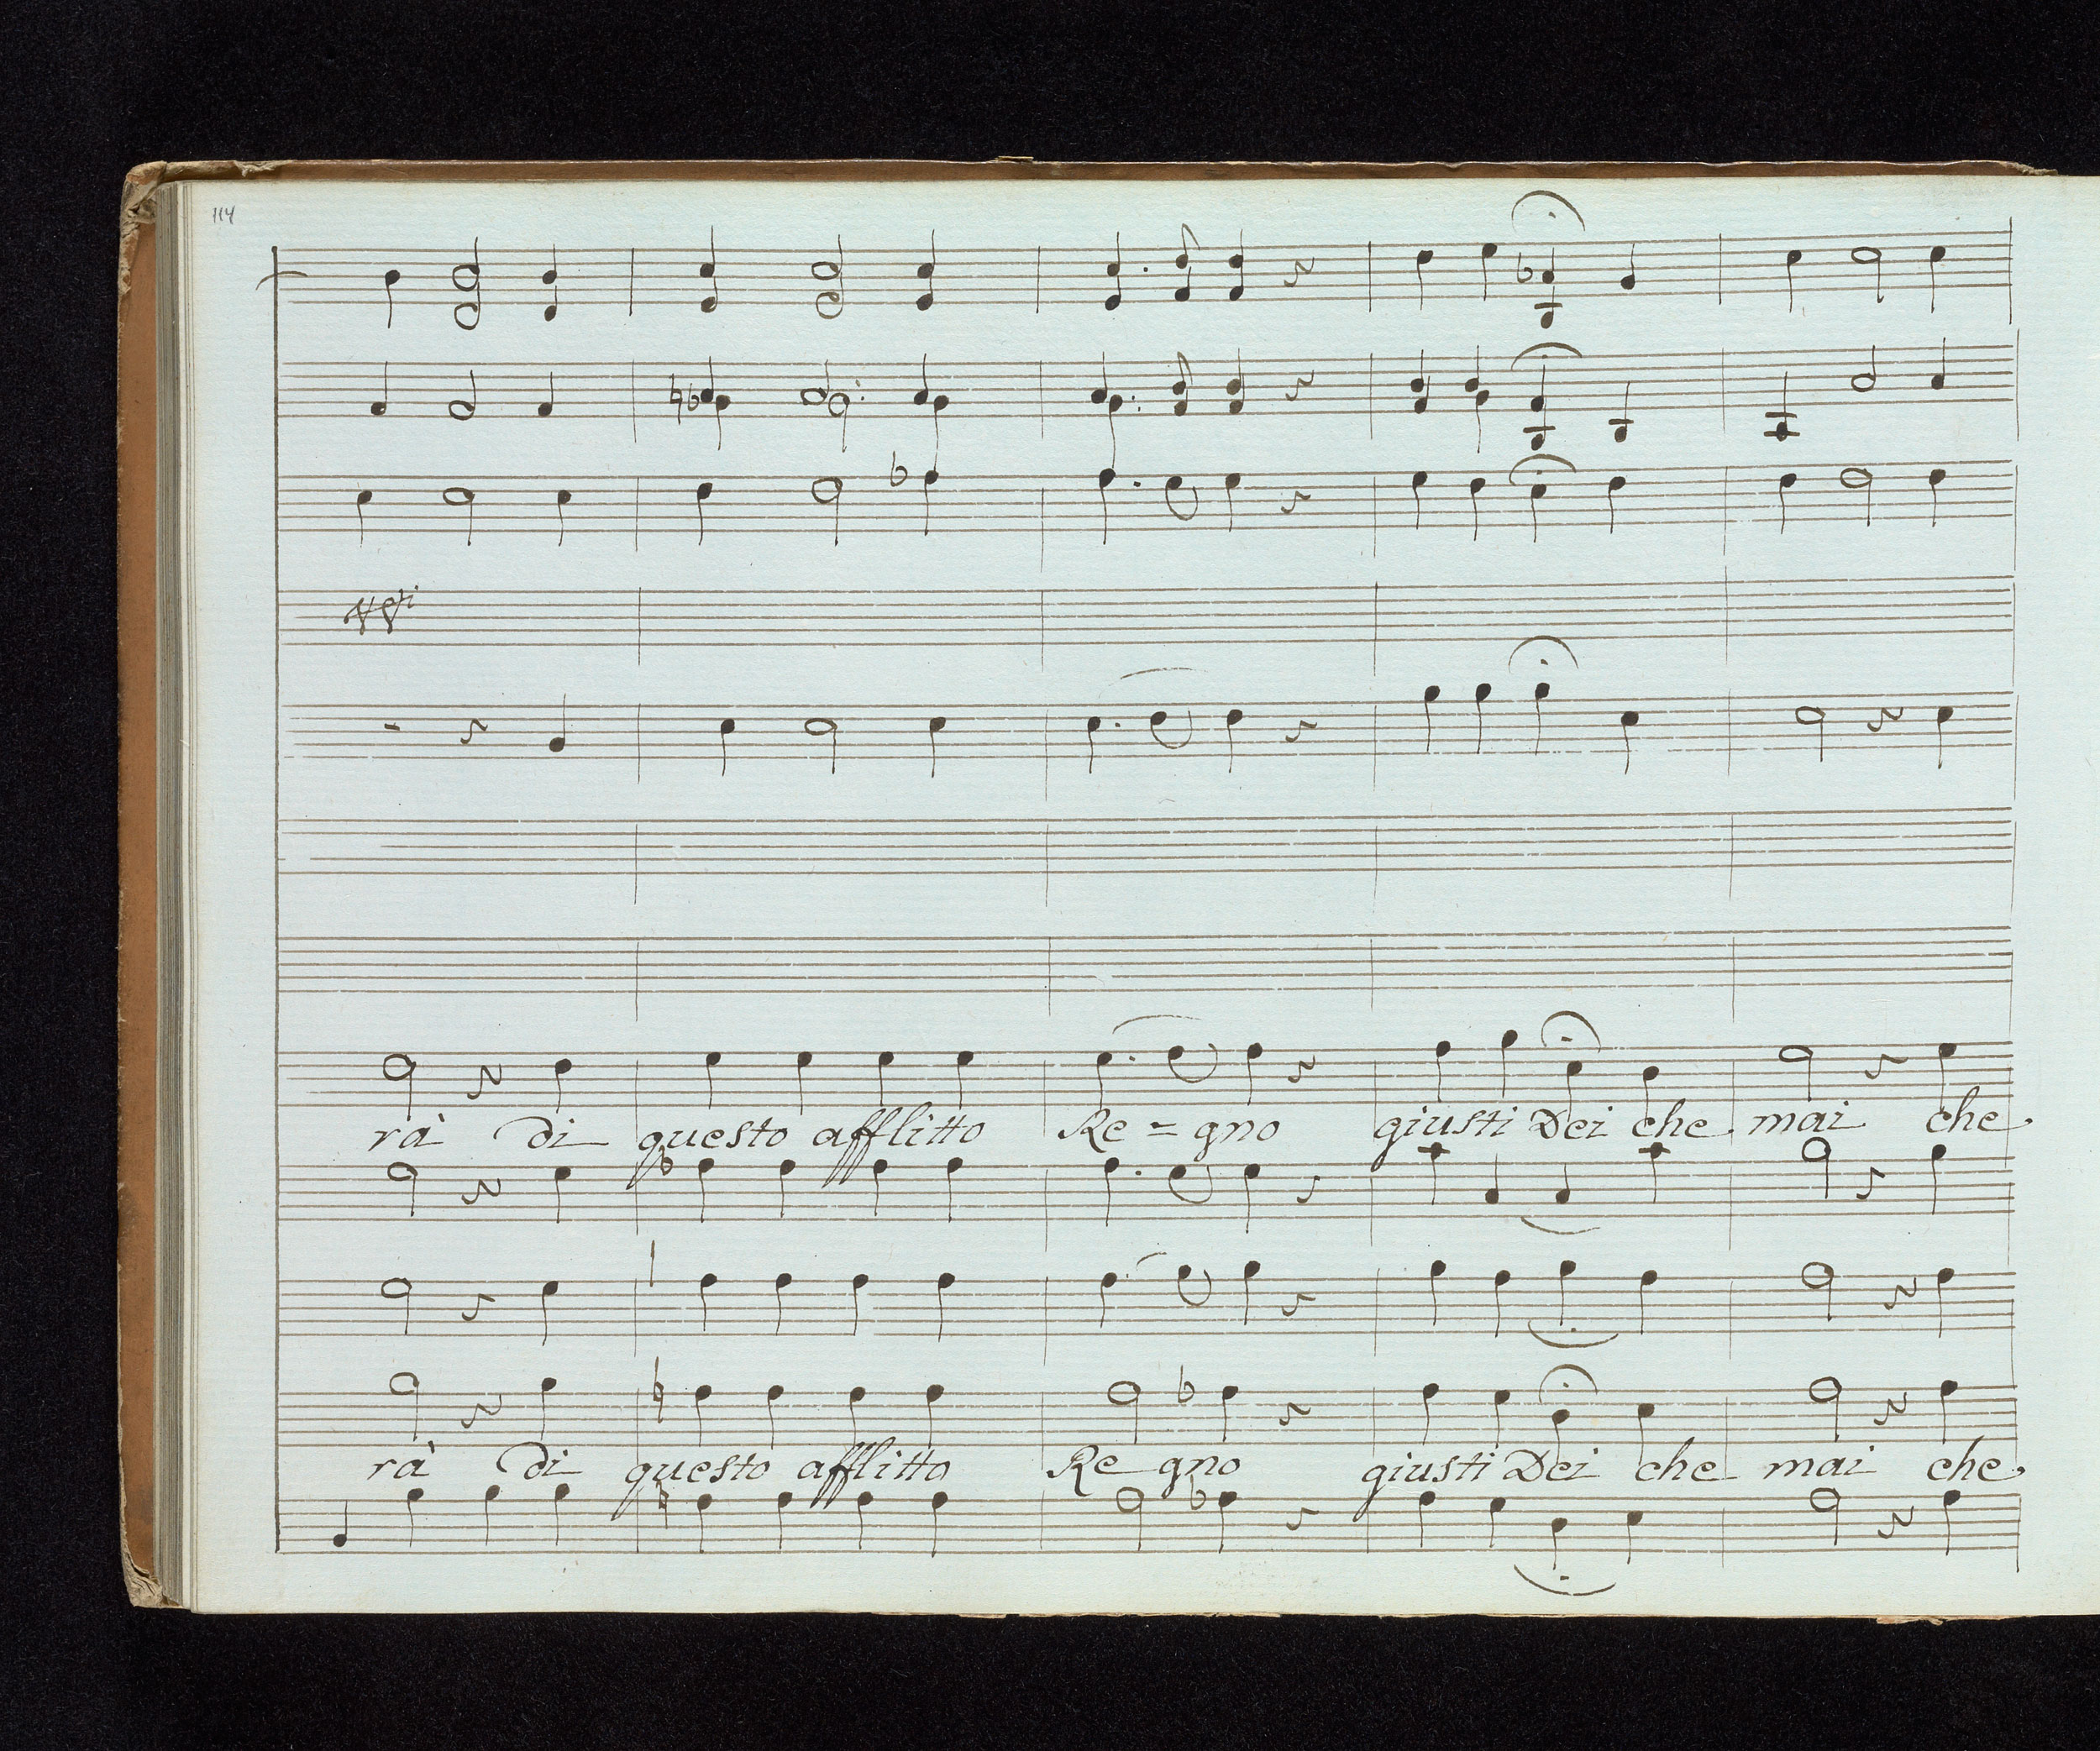 114
rà di questo afflitto Re = gno giusti Dei che mai che
rà di questo afflitto Re gno giusti Dei che mai che